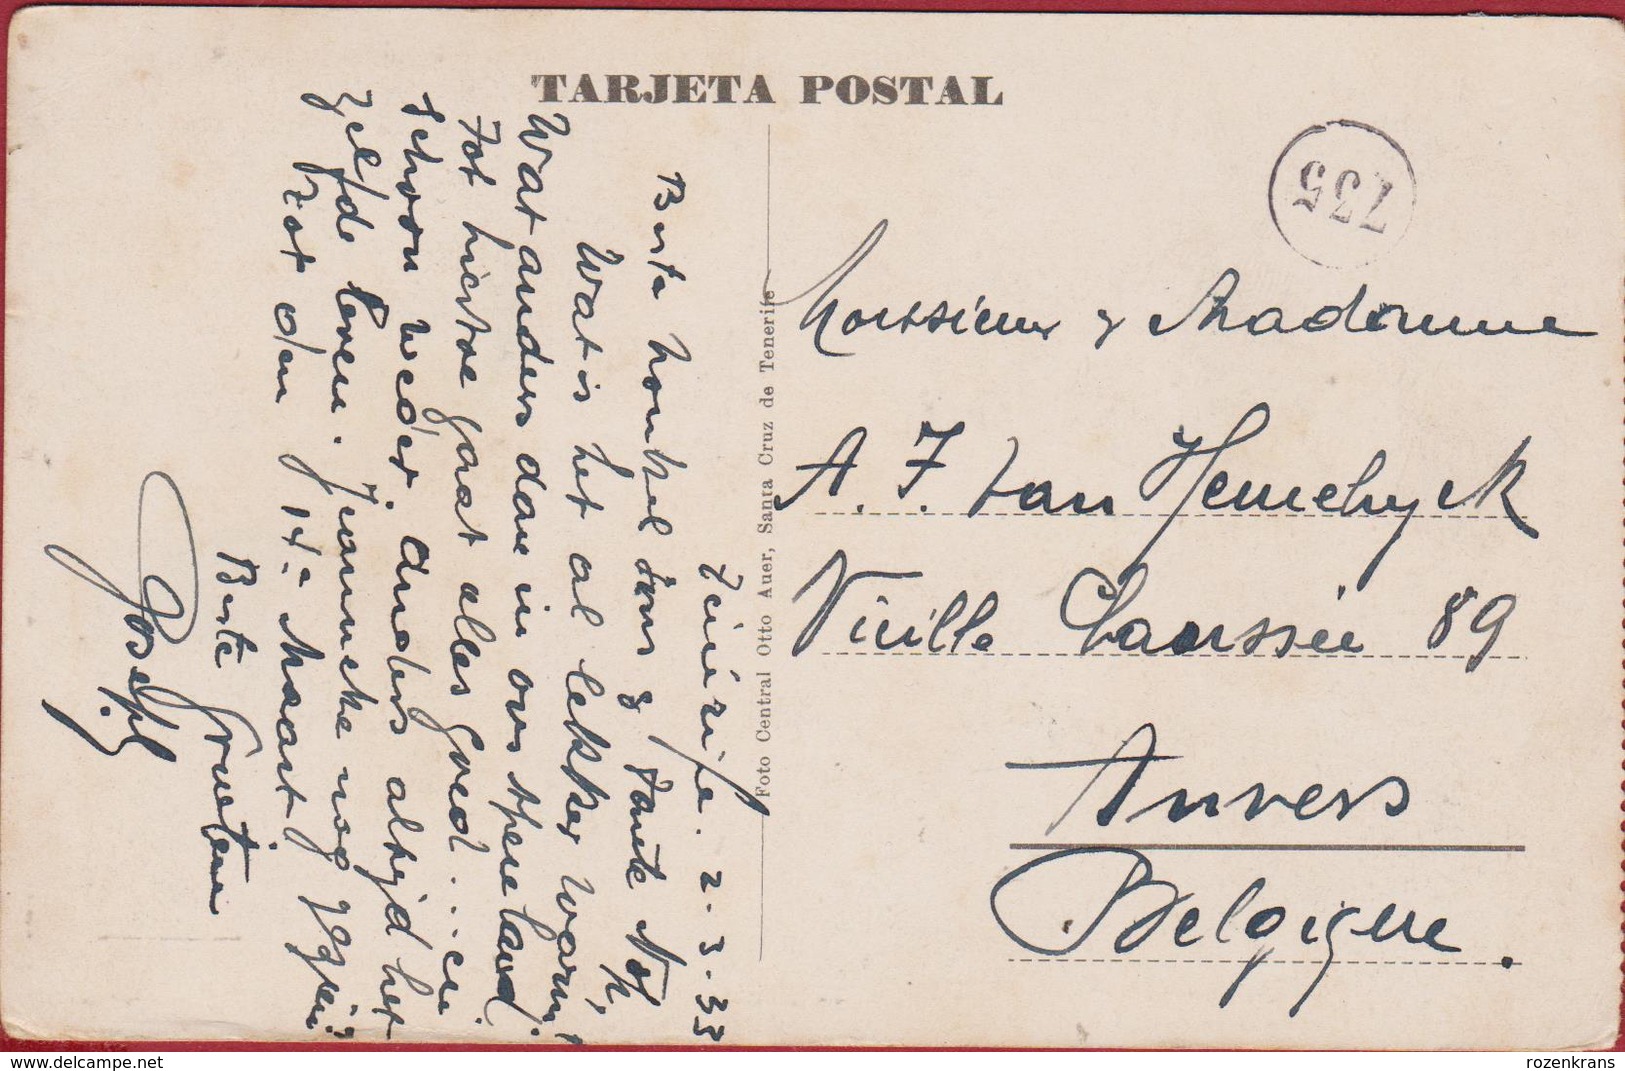 TARJETA POSTAL
735
Ténérife. 2-3-33
Beste Nonkel Fons & Tante Noh,
Wat is het al lekker warm!
Wat anders dan in ons apenland.
Tot hiertoe gaat alles goed ... en
schoon weder, anders altijd het
zelfde leven. Jeanneke nog
Tot den 14e Maart
Beste Groeten
Joseph
Foto Central Otto Auer, Santa Cruz de Tenerife
Monsieur & Madame
A. F. Van
Vieille Chaussée 89
Anvers
Belgique.
rozenkrans